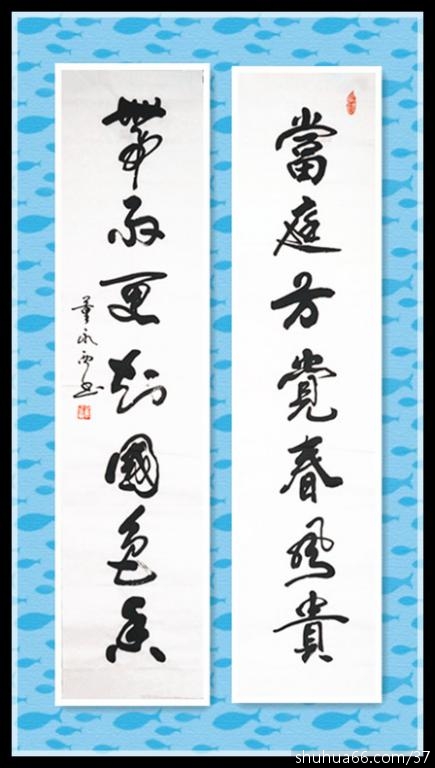 當庭方覺春風貴
帶雨更知國色香
董永西书
shuhua66.com/37